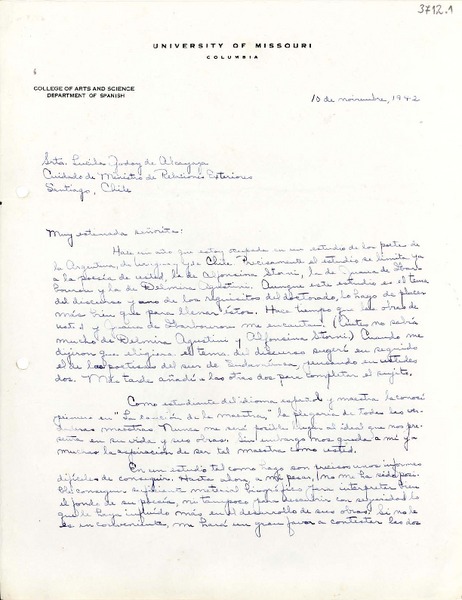 3712.1
UNIVERSITY OF MISSOURI
COLUMBIA
COLLEGE OF ARTS AND SCIENCE
DEPARTMENT OF SPANISH
10 de noviembre, 1942
Srta. Lucila Juday de Alcayaga
Cuidado de Ministro de Relaciones Exteriores
Santiago, Chile
Muy estimada señorita:
Hace un año que estoy ocupada en un estudio de los poetas de
la Argentina, de Uruguay y de Chile. Precisamente el estudio se limita ya
a la poesía de usted, la de Alfonsina Storni, la de Juana de Ibar-
bourou y la de Delmira Agustini. Aunque este estudio es el tema
del discurso y uno de los requisitos del doctorado, lo hago de placer
más bien que para llenar éstos. Hace tiempo que las obras de
usted y Juana de Ibarbourou me encantan. (Antes no sabía
mucho de Delmira Agustini y Alfonsina Storni.) Cuando me
dijeron que eligiera el tema del discurso sugerí en seguida
el de las poetisas del sur de Sudamérica, pensando en ustedes
dos. Más tarde añadí a las otras dos para completar el sujeto.
Como estudiante del idioma español y maestra la conocí
primero en "La oración de la maestra," la plegaria de todas las ver-
daderas maestras. Nunca me será posible llegar al ideal que nos pre-
senta en su vida y sus obras. Sin embargo nos queda a mí y a
muchas la aspiración de ser tal maestra como usted.
En un estudio tal como hago son precisos unos informes
difíciles de conseguir. Hasta ahora, a mi pesar, no me ha sido posi-
ble conseguir suficiente material biográfico para interpretar bien
el fondo de su poesía, ni tampoco para descubrir con seguridad lo
que le haya influido más en el desarrollo de sus obras. Si no le
es un inconveniente, me hará un gran favor a contestar las dos